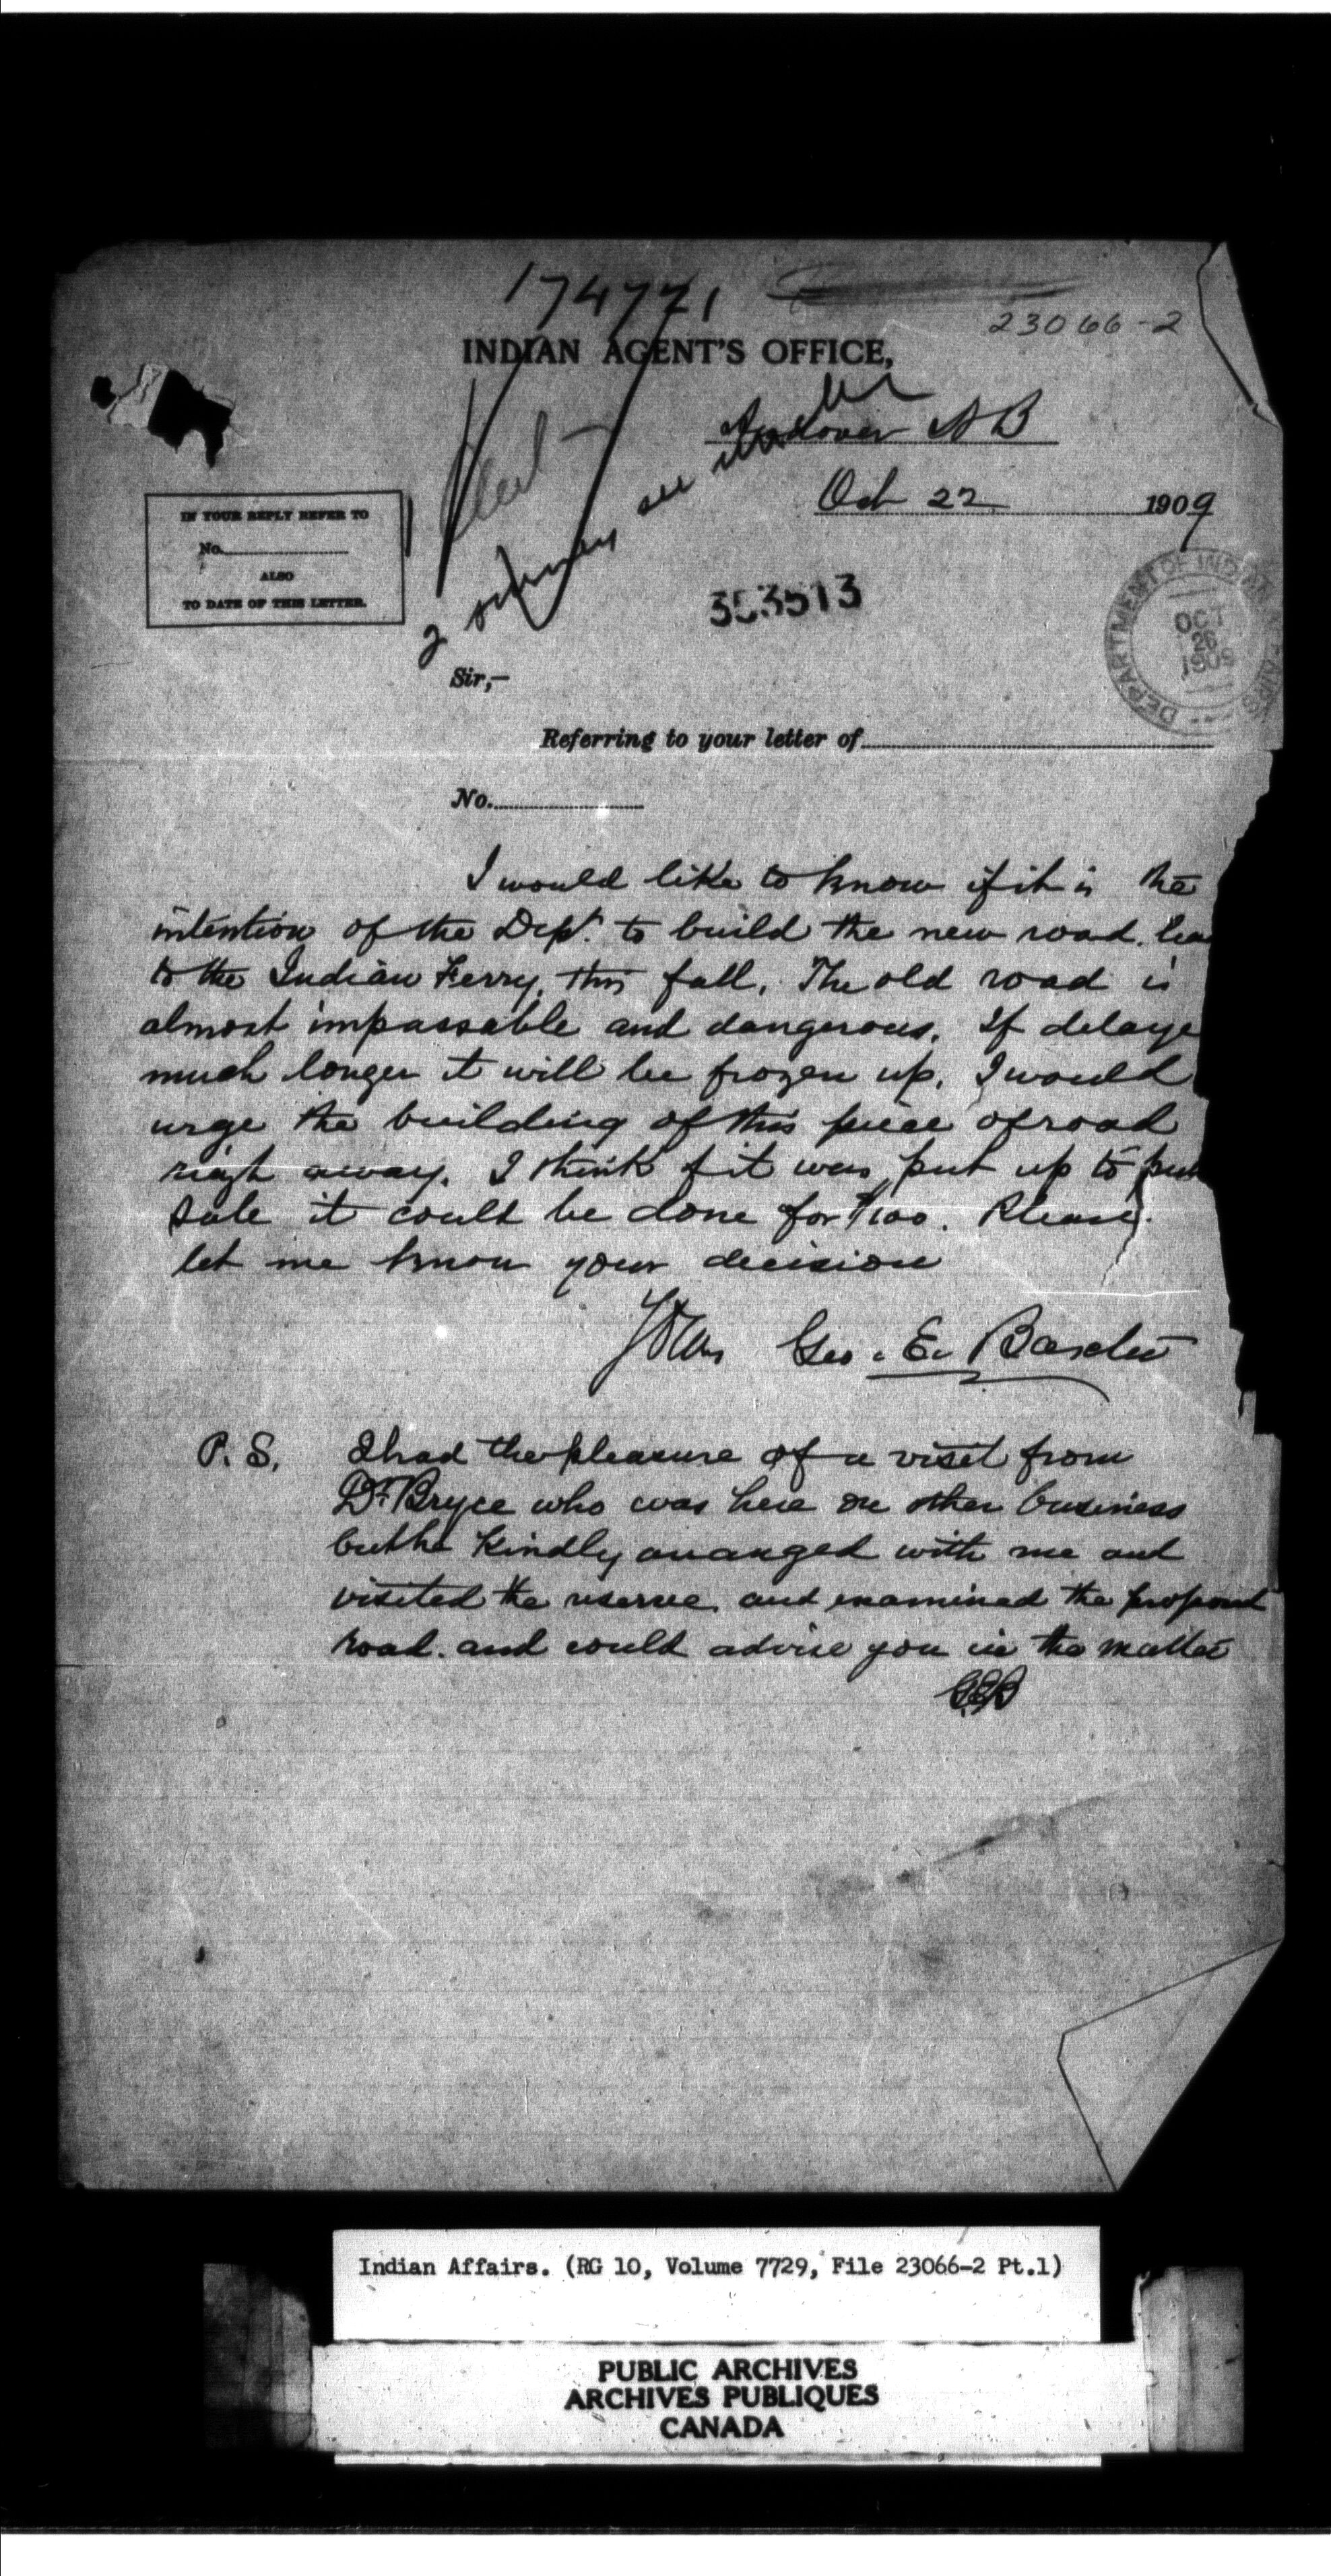 174771
23066-2
INDIAN AGENT'S OFFICE,
Andover NB
Oct 22 1909
IN YOUR REPLY REFER TO
No.
ALSO
TO DATE OF THIS LETTER.
353513
DEPARTMENT OF INDIAN AFFAIRS
OCT
26
1909
Sir,—
Referring to your letter of
No.
I would like to know if it is the
intention of the Dept. to build the new road. lea
to the Indian Ferry, this fall. The old road is
almost impassable and dangerous. If delaye
much longer it will be frozen up. I would
urge the building of this piece of road
right away. I think if it was put up to pub
sale it could be done for $100. Please
let me know your decision
Yours Geo. E. Baxter
P. S. I had the pleasure of a visit from
Dr. Bryce who was here on other business
but he kindly arranged with me and
visited the reserve and examined the proposed
road. and could advise you in the matter
GEB
Indian Affairs. (RG 10, Volume 7729, File 23066-2 Pt.1)
PUBLIC ARCHIVES
ARCHIVES PUBLIQUES
CANADA